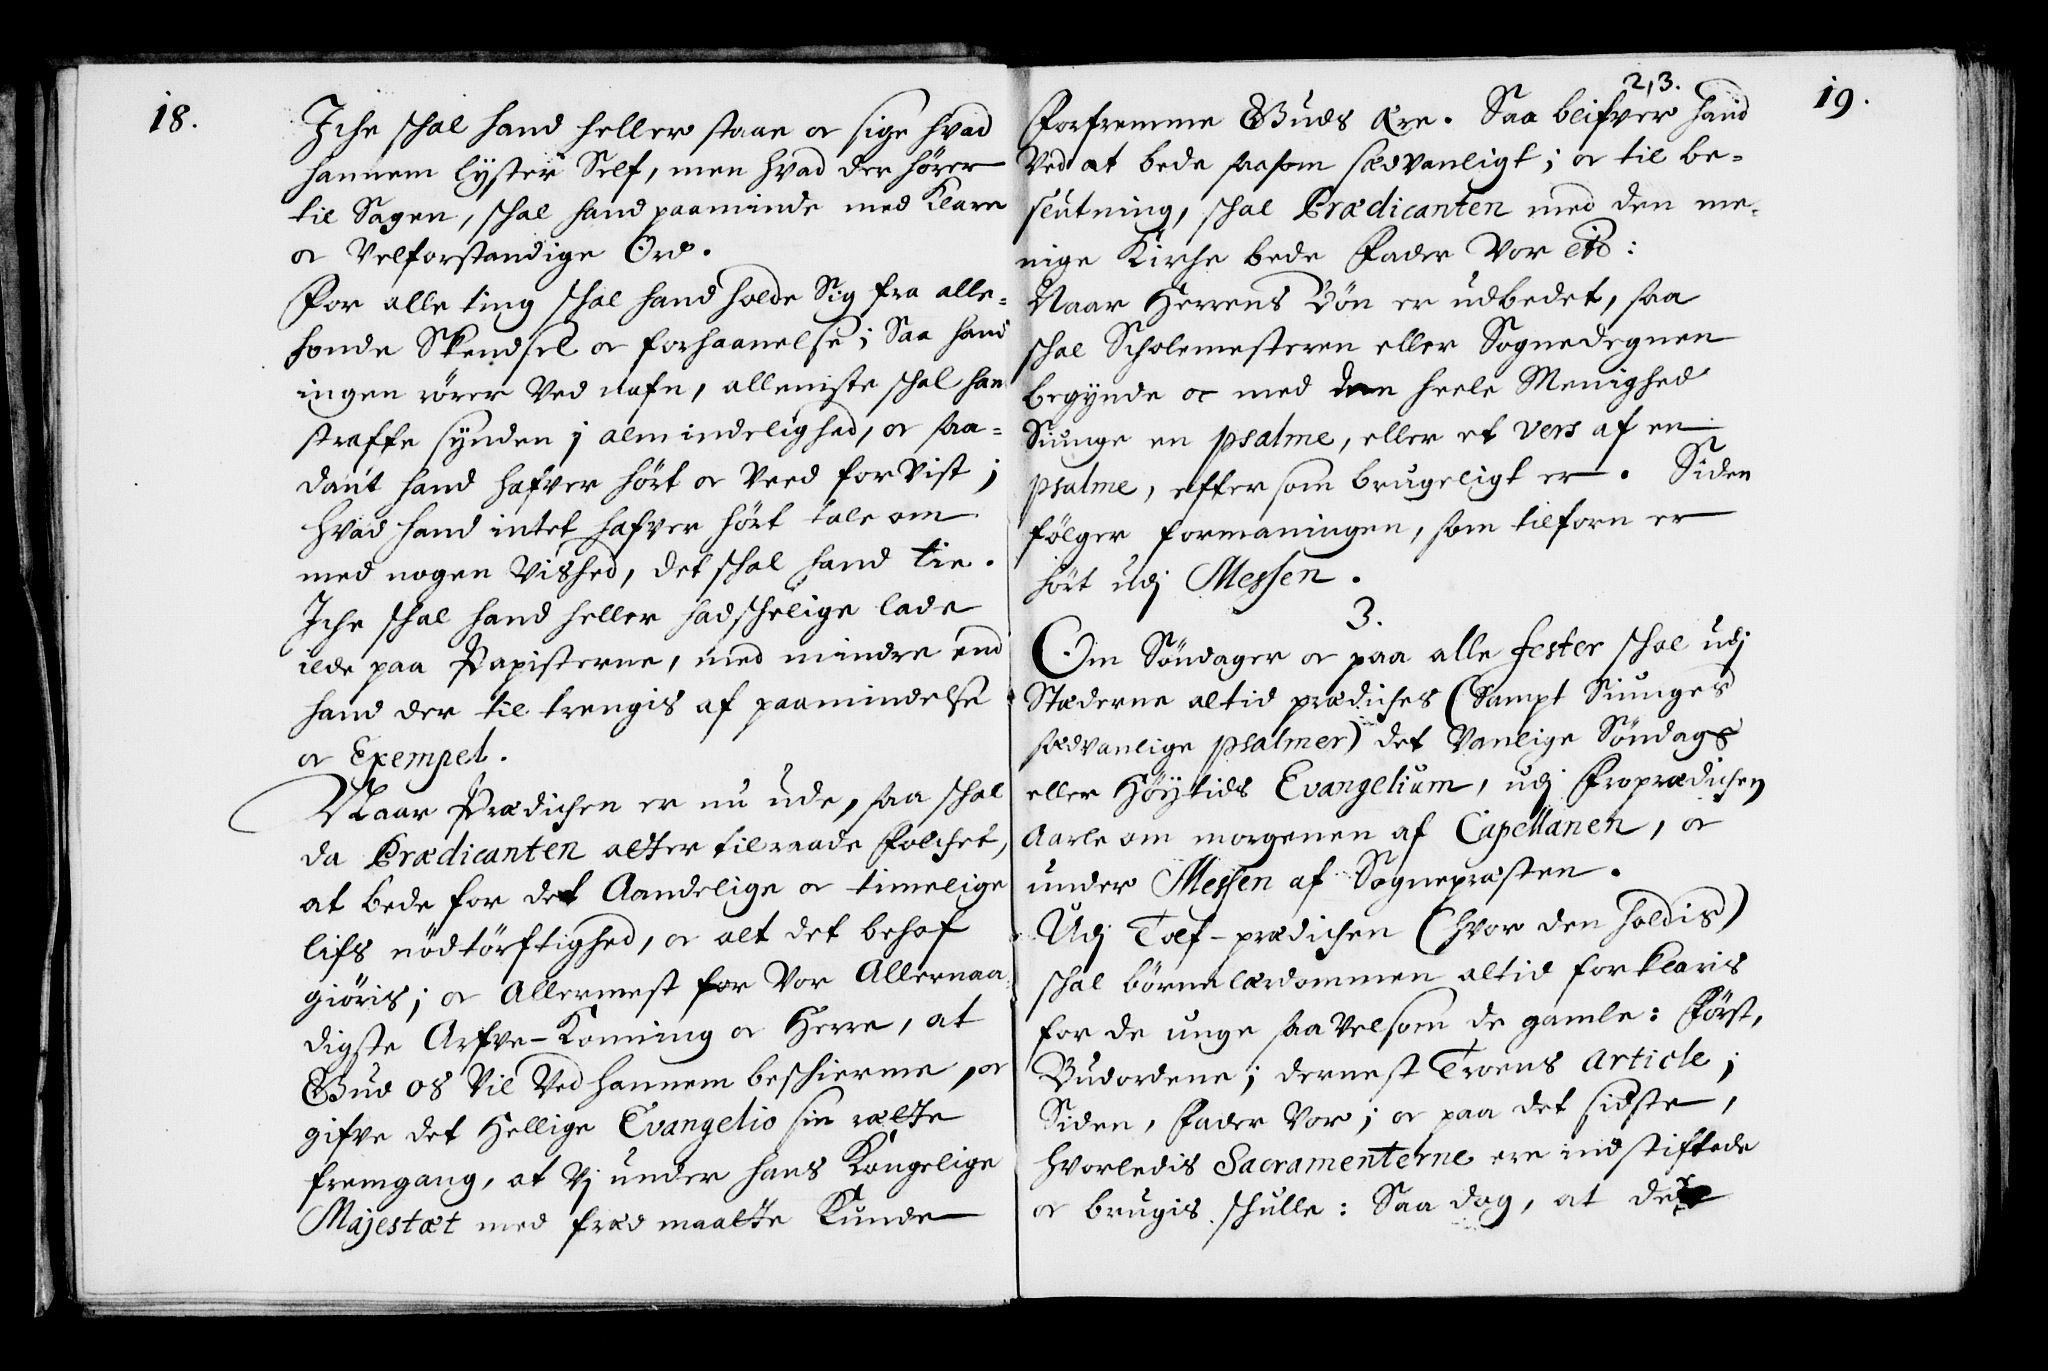 18.
Iche schal hand heller staae oc sige hvad
hannem lyster Self, men hvad der hører
til Sagen, schal hand paaminde med klare
oc velforstandige Ord.
For alle ting schal hand holde Sig fra alle-
honde Skendsel oc forhaanelse; Saa hand
ingen rörer ved nafn, alleniste schal han
straffe synden j almindelighed, oc saa-
daút hand hafver hört oc veed for vist;
hvad hand intet hafver hört tale om
med nogen vished, det schal hand tie.
Iche schal hand heller hadschelige lade
ilde paa Papisterne, med mindre end
hand der til trengis af paamindelse
oc Exempel.
Naar Prædichen er nu ude, saa schal
da Prædicanten atter tilraade Folchet,
at bede for det Aandelige oc timelige
lifs nödtörftighed, oc alt det behof
giöris; oc Allermest for vor Allernaa
digste Arfve-Konning oc Herre, at
Gud os vil ved hannem beschierme, oc
gifve det Hellige Evangelio sin rætte
fremgang, at vj under hans Kongelige
Majestæt med fred maatte kunde
2,3.
19.
Forfremme Guds Ære. Saa blifver hand
ved at bede saasom sædvanligt; oc til be-
slutning, schal Prædicanten med den me-
nige Kirche bede Fader vor etc:
Naar Herrens Bön er udbedet, saa
schal Scholemesteren eller Sognedegnen
begynde oc med den heele Menighed
Siunge en psalme, eller et vers af en
psalme, eftersom brugeligt er. Siden
fölger formaningen, som tilforn er
hört udj Messen.
3.
Om Söndager oc paa alle fester schal udj
Stæderne altid prædiches (Sampt Siunges
sædvanlige psalmer) det vanlige Söndags
eller Höytids Evangelium, udj Froprædichen
aarle om morgenen af Capellanen, oc
under Messen af Sognepræsten.
Udj Tolf-prædichen (hvor den holdis)
schal börnelærdommen altid forklaris
for de unge saavelsom de gamle: Först,
Budordene; dernest Troens Article;
Siden, Fader vor; oc paa det sidste,
hvorledis Sacramenterne ere indstiftede
oc brugis schulle: Saa dog, at